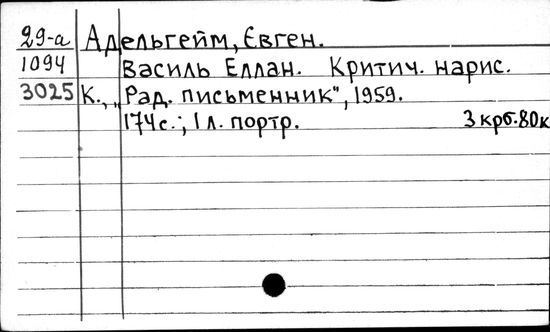 29-а Адельгейм, Євген.
1094 Василь Еллан. Критич. нарис.
3025 К., „Рад. письменник", 1959.
174с.; 1 л. портр. 3 крб. 80к